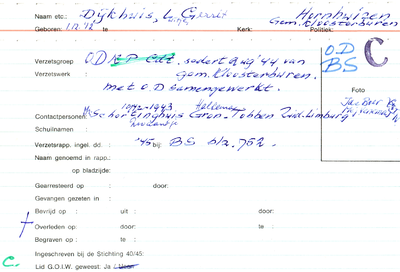 Naam etc.: Dijkhuis, L. Hornhuizen
Gem. Kloosterburen
Geboren: te Kerk: Politiek:
O.D
BS
C
Verzetsgroep : O.D. sedert Aug '44 van
Verzetswerk : Gem. Kloosterburen.
met O.D samengewerkt.
Foto
1942-1943
Contactpersonen: Schortinghuis Gron. Tobben Zuid-Limburg
Schuilnamen :
Verzetsrapp. ingel. dd. : '45 bij: BS blz. 762.
Naam genoemd in rapp.:
op bladzijde:
Gearresteerd op : door:
Gevangen gezeten in :
Bevrijd op : uit : door:
Overleden op : door: te :
Begraven op : te :
Ingeschreven bij de Stichting 40/45:
C.
Lid G.O.I.W. geweest: Ja / Neen